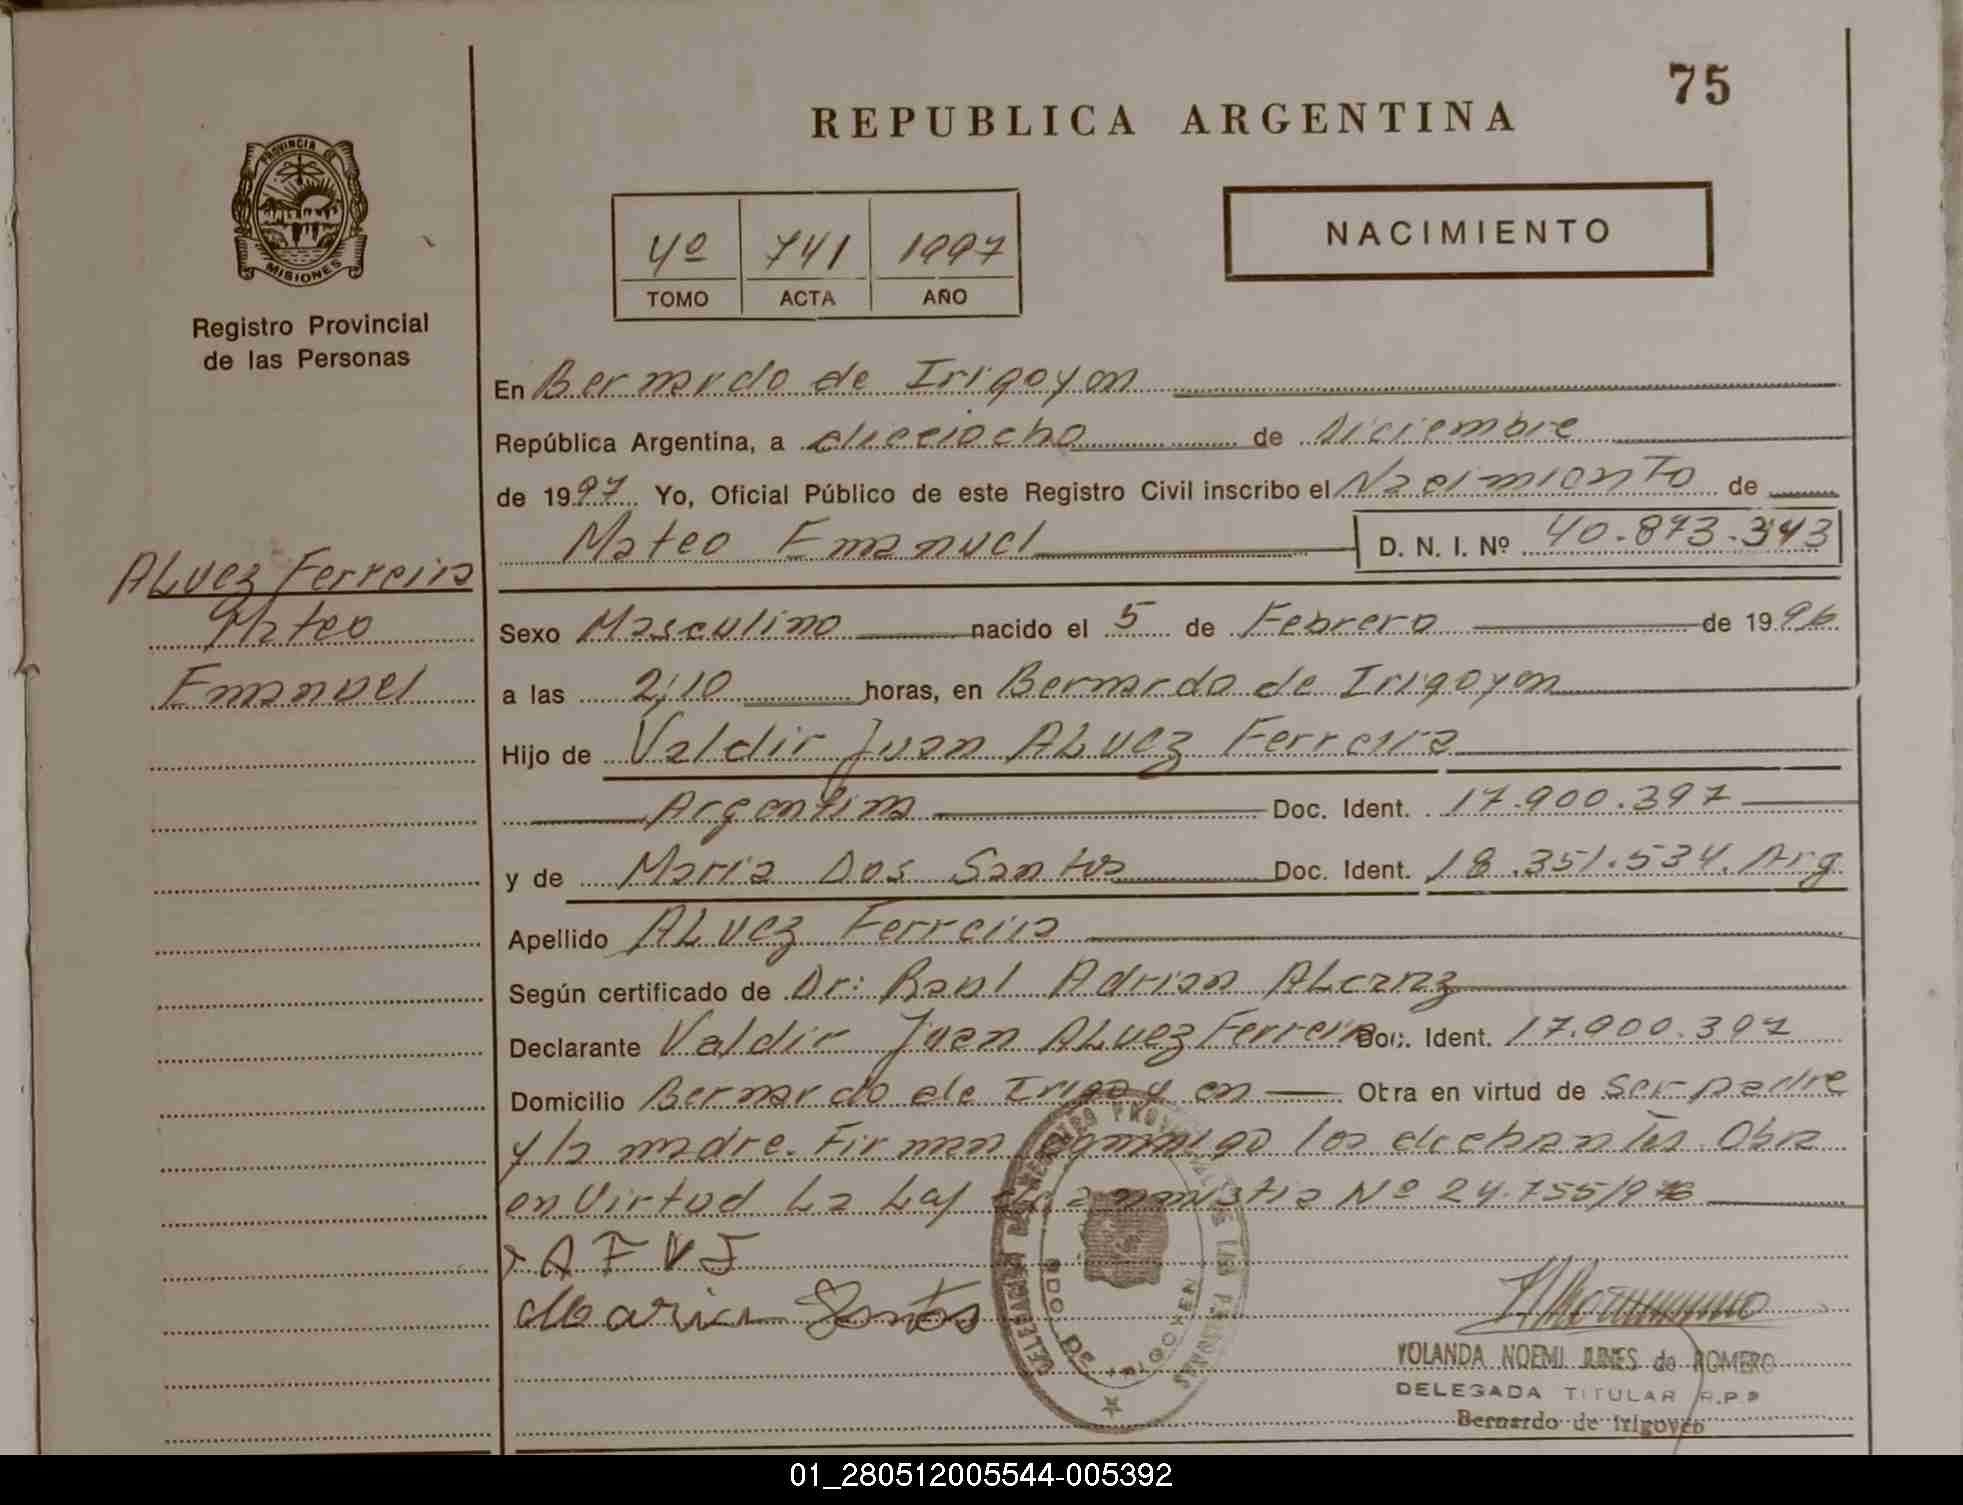 75
REPUBLICA ARGENTINA
PROVINCIA DE
MISIONES
Registro Provincial
de las Personas
4º 741 1997
TOMO ACTA AÑO
NACIMIENTO
En Bernardo de Irigoyen
República Argentina, a dieciocho de Diciembre
de 1997 Yo, Oficial Público de este Registro Civil inscribo el Nacimiento de
Mateo Emanuel D. N. I. Nº 40.873.343
ALvez Ferreira
Mateo
Emanuel
Sexo Masculino nacido el 5 de Febrero de 1996
a las 2,10 horas, en Bernardo de Irigoyen
Hijo de Valdir Juan ALvez Ferreira
Argentina Doc. Ident. 17.900.397
y de Maria Dos Santos Doc. Ident. 18.351.534. Arg
Apellido ALvez Ferreira
Según certificado de Dr: Raul Adrian ALcaraz
Declarante Valdir Juan ALvez Ferreira Doc. Ident. 17.900.397
Domicilio Bernardo de Irigoyen Obra en virtud de ser padre
y la madre. Firman conmigo los declarantes. Obra
en Virtud La Ley de amnistia Nº 24.755/96
AFVJ
Maria Santos
DELEGACION DEL REGISTRO PROVINCIAL DE LAS PERSONAS
BDO. DE IRIGOYEN
YOLANDA NOEMI JUNES de ROMERO
DELEGADA TITULAR R.P.P
Bernardo de Irigoyen
01_280512005544-005392